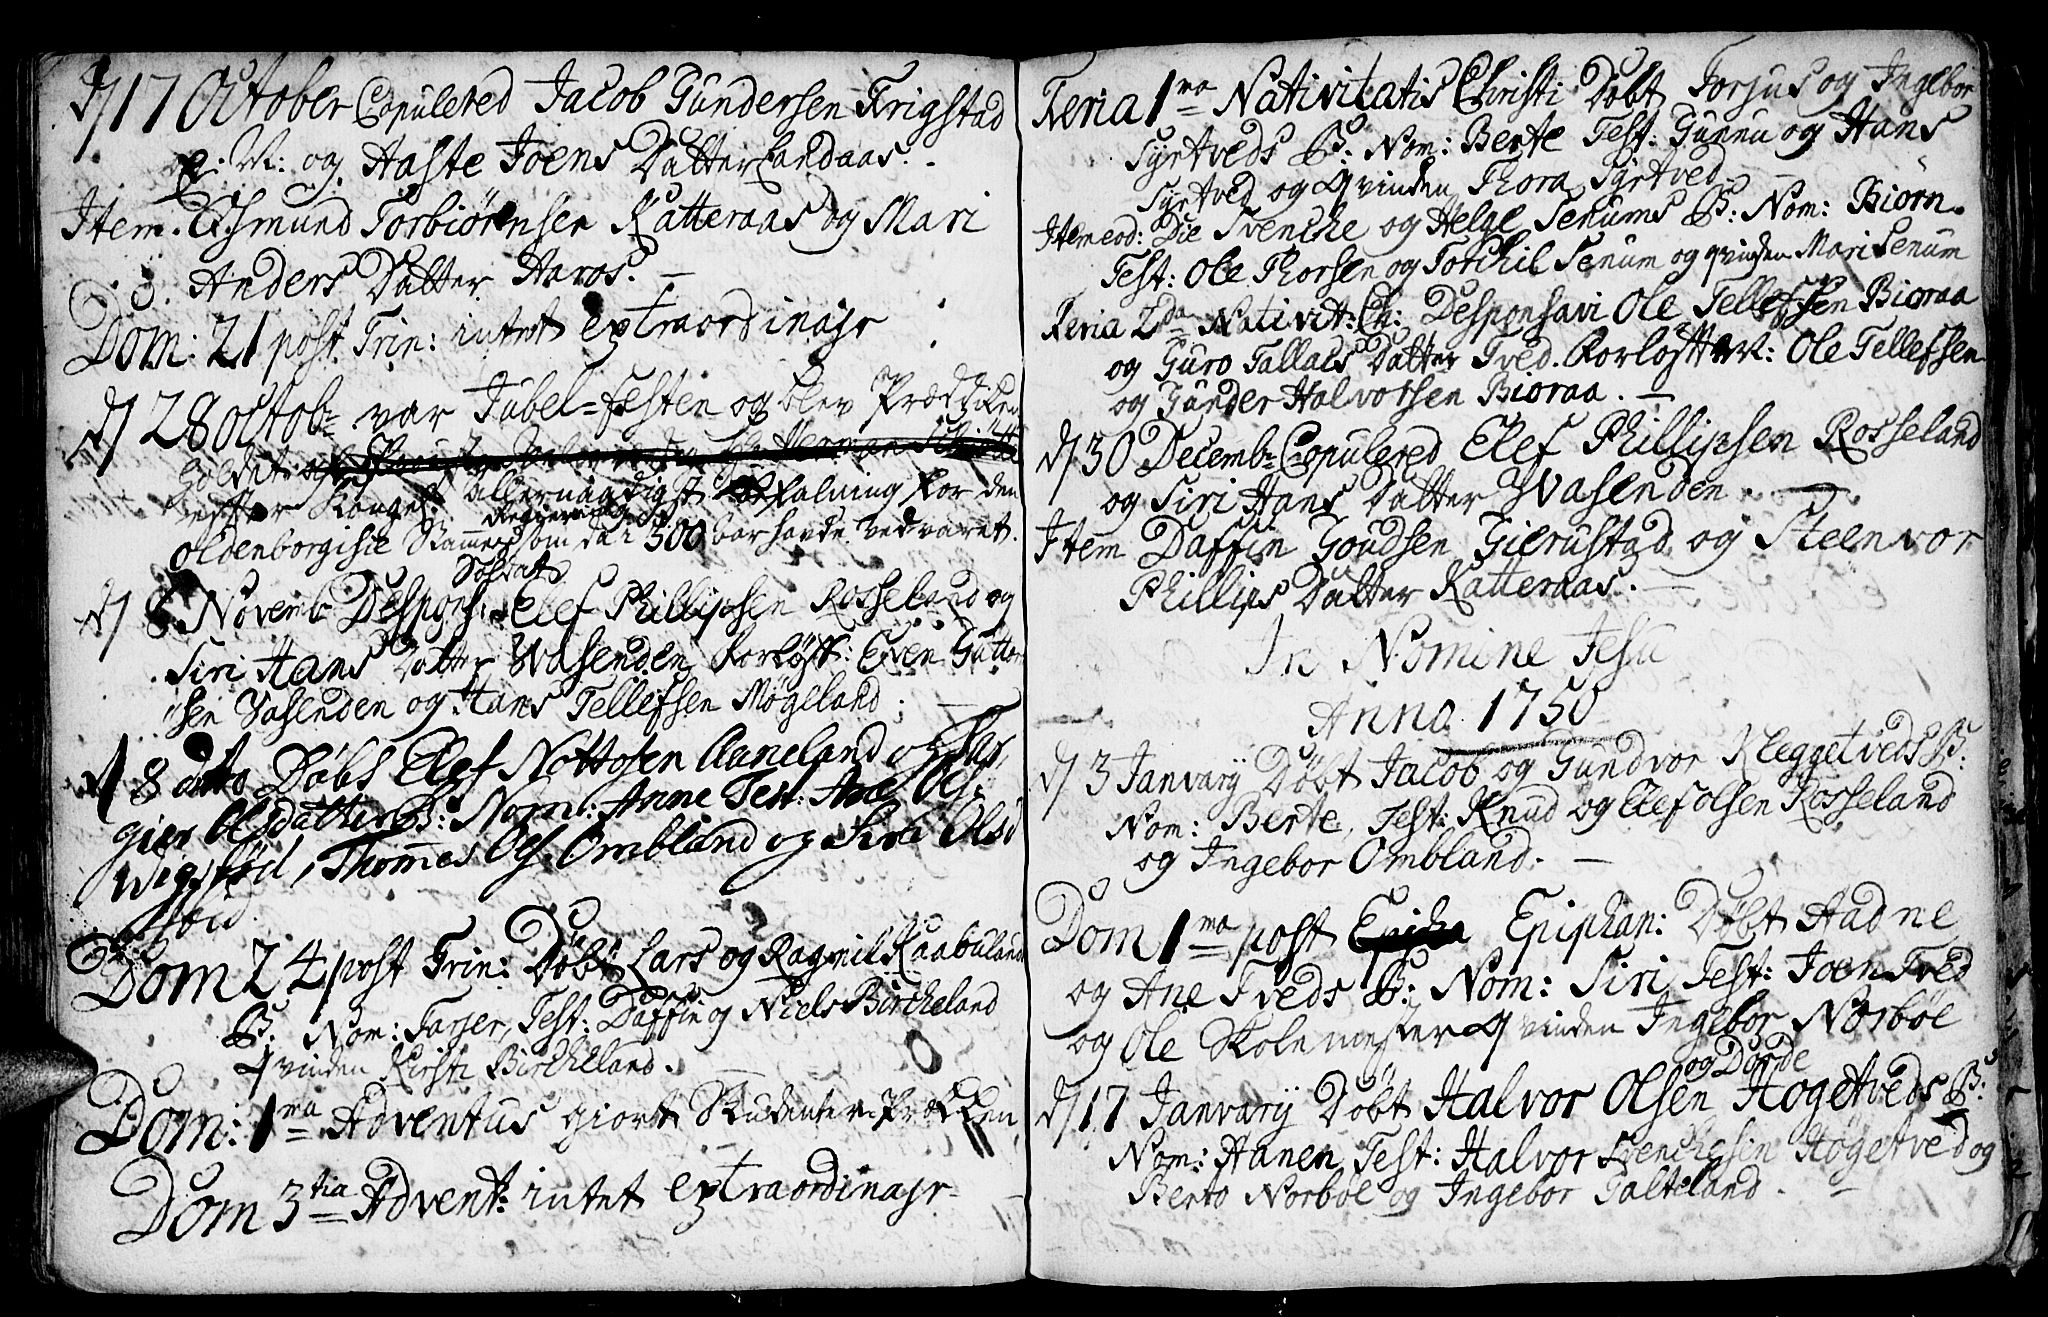 D/ 17 October Copulered Jacob Gundersen Frigstad
E: M: og Aaste Joens Datter Landaas.
Item. Asmund Torbiörnsen Katteraas og Mari
Anders Datter Aaros. —
Dom: 21 post Trin: intet extraordinajr
D/ 28 octob: var Jubel=festen og blev Præddiken
holdet
efter Kongel: allernaadigst befalning for den
Regiering
Oldenborgisk Stammes som da i 300 aar havde vedvaret.
Soldat
D/ 8 Novemb Despons: Elef Phillipsen Rosseland og
Siri Hans Datter Wasenden, Forløft: Even Guttor
sen Vasenden og Hans Tellefsen Møgeland. —
D/ 8 ditto Döbt Elef Nottosen Aaneland og
gier Olsdatters B: Nom: Anne Test: Ane Ols:
Wigstöl, Thommes Ols. Ombland og Siri Olsd
Dom 24 post Trin: Döbt Lars og Ragnil Kaabuland
B: Nom: Tarjer, Test: Daffin og Niels Bircheland
qvinden Kirsti Bircheland. —
Dom: 1ma Adventus giort Studenter Præcken
Dom 3tia Advent: intet extraordinajr —
Feria 1ma Nativitatis Christi Döbt Torjus og Ingebor
Syrtveds B: Nom: Berte Test: Gunnu og Hans
Syrtved og Qvinden Thora Syrtved —
Item eod: Die Svenche og Helge Senums B: Nom: Biörn.
Test: Ole Thorsen og Torchil Senum og qvinden Mari Senum
Feria 2da Nativit: Ch: Desponsavi Ole Tellefsen Bioraa
og Guro Tallacs Datter Tved. Forløft M: Ole Tellefsen
og Gunder Halvorsen Bioraa. —
D/ 30 Decemb: Copulered Elef Phillipsen Rosseland
og Siri Hans Datter Wasenden. —
Item Daffin Goudsen Gierustad og Steenvor
Phillips Datter Katteraas. —
In Nomine Jesu
Anno 1750
D/ 3 Januarij Döbt Jacob og Gundvor Kleggetveds B:
Nom: Berte, Test: Knud og Elef olsen Rosseland
og Ingebor Ombland. —
Dom 1ma post Epiphan: Döbt Aadne
og Ane Tveds B: Nom: Siri Test: Joen Tved
og Ole Skolemester Qvinden Ingebor Norböe
og Dorde
D/ 17 Januarij Döbt Halvor Olsen Hogetveds B:
Nom: Hanen, Test: Halvor Svenchesen Høgetved og
Berto Norböe og Ingebor Talteland. —